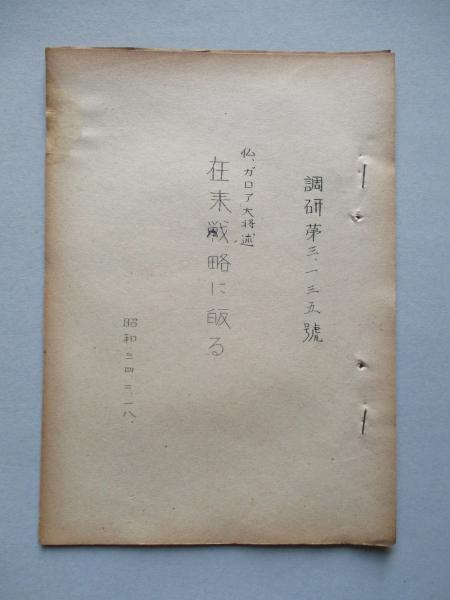 調研第三、一三五號
仏、ガロア大将述
在来戦略に皈る
昭和三四、三、一八、